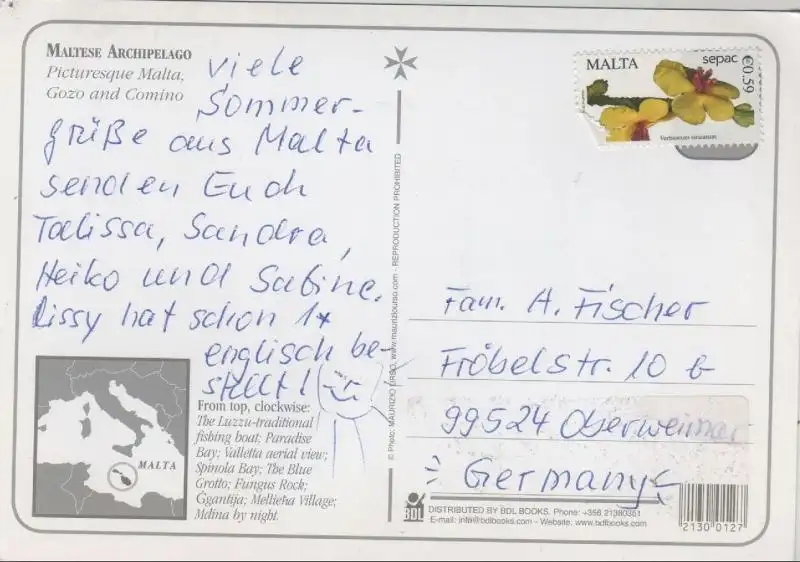 MALTESE ARCHIPELAGO
Picturesque Malta,
Gozo and Comino
viele
Sommer-
grüße aus Malta
senden Euch
Talissa, Sandra,
Heiko und Sabine.
Lissy hat schon 1x
englisch be-
stellt!
From top, clockwise:
The Luzzu-traditional
fishing boat; Paradise
Bay; Valletta aerial view;
Spinola Bay; The Blue
Grotto; Fungus Rock;
Ggantija; Mellieha Village;
Mdina by night.
MALTA
© Photo: MAURIZIO URSO, www.mauriziourso.com - REPRODUCTION PROHIBITED
MALTA sepac €0.59
Fam. A. Fischer
Fröbelstr. 10 b
99524 Oberweimar
Germany
BDL
DISTRIBUTED BY BDL BOOKS. Phone: +356 21380351
E-mail: info@bdlbooks.com - Website: www.bdlbooks.com
2130 0127